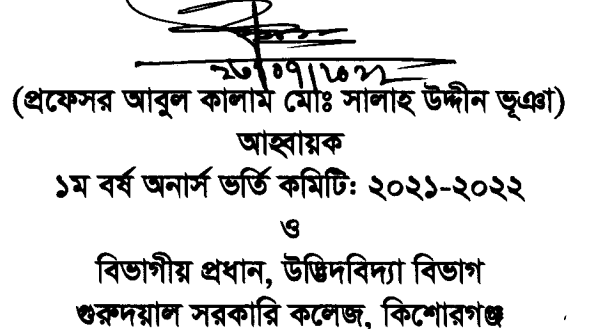 ২৬/০৭/২০২২
(প্রফেসর আবুল কালাম মোঃ সালাহ উদ্দীন ভূঞা)
আহ্বায়ক
১ম বর্ষ অনার্স ভর্তি কমিটি: ২০২১-২০২২
ও
বিভাগীয় প্রধান, উদ্ভিদবিদ্যা বিভাগ
গুরুদয়াল সরকারি কলেজ, কিশোরগঞ্জ